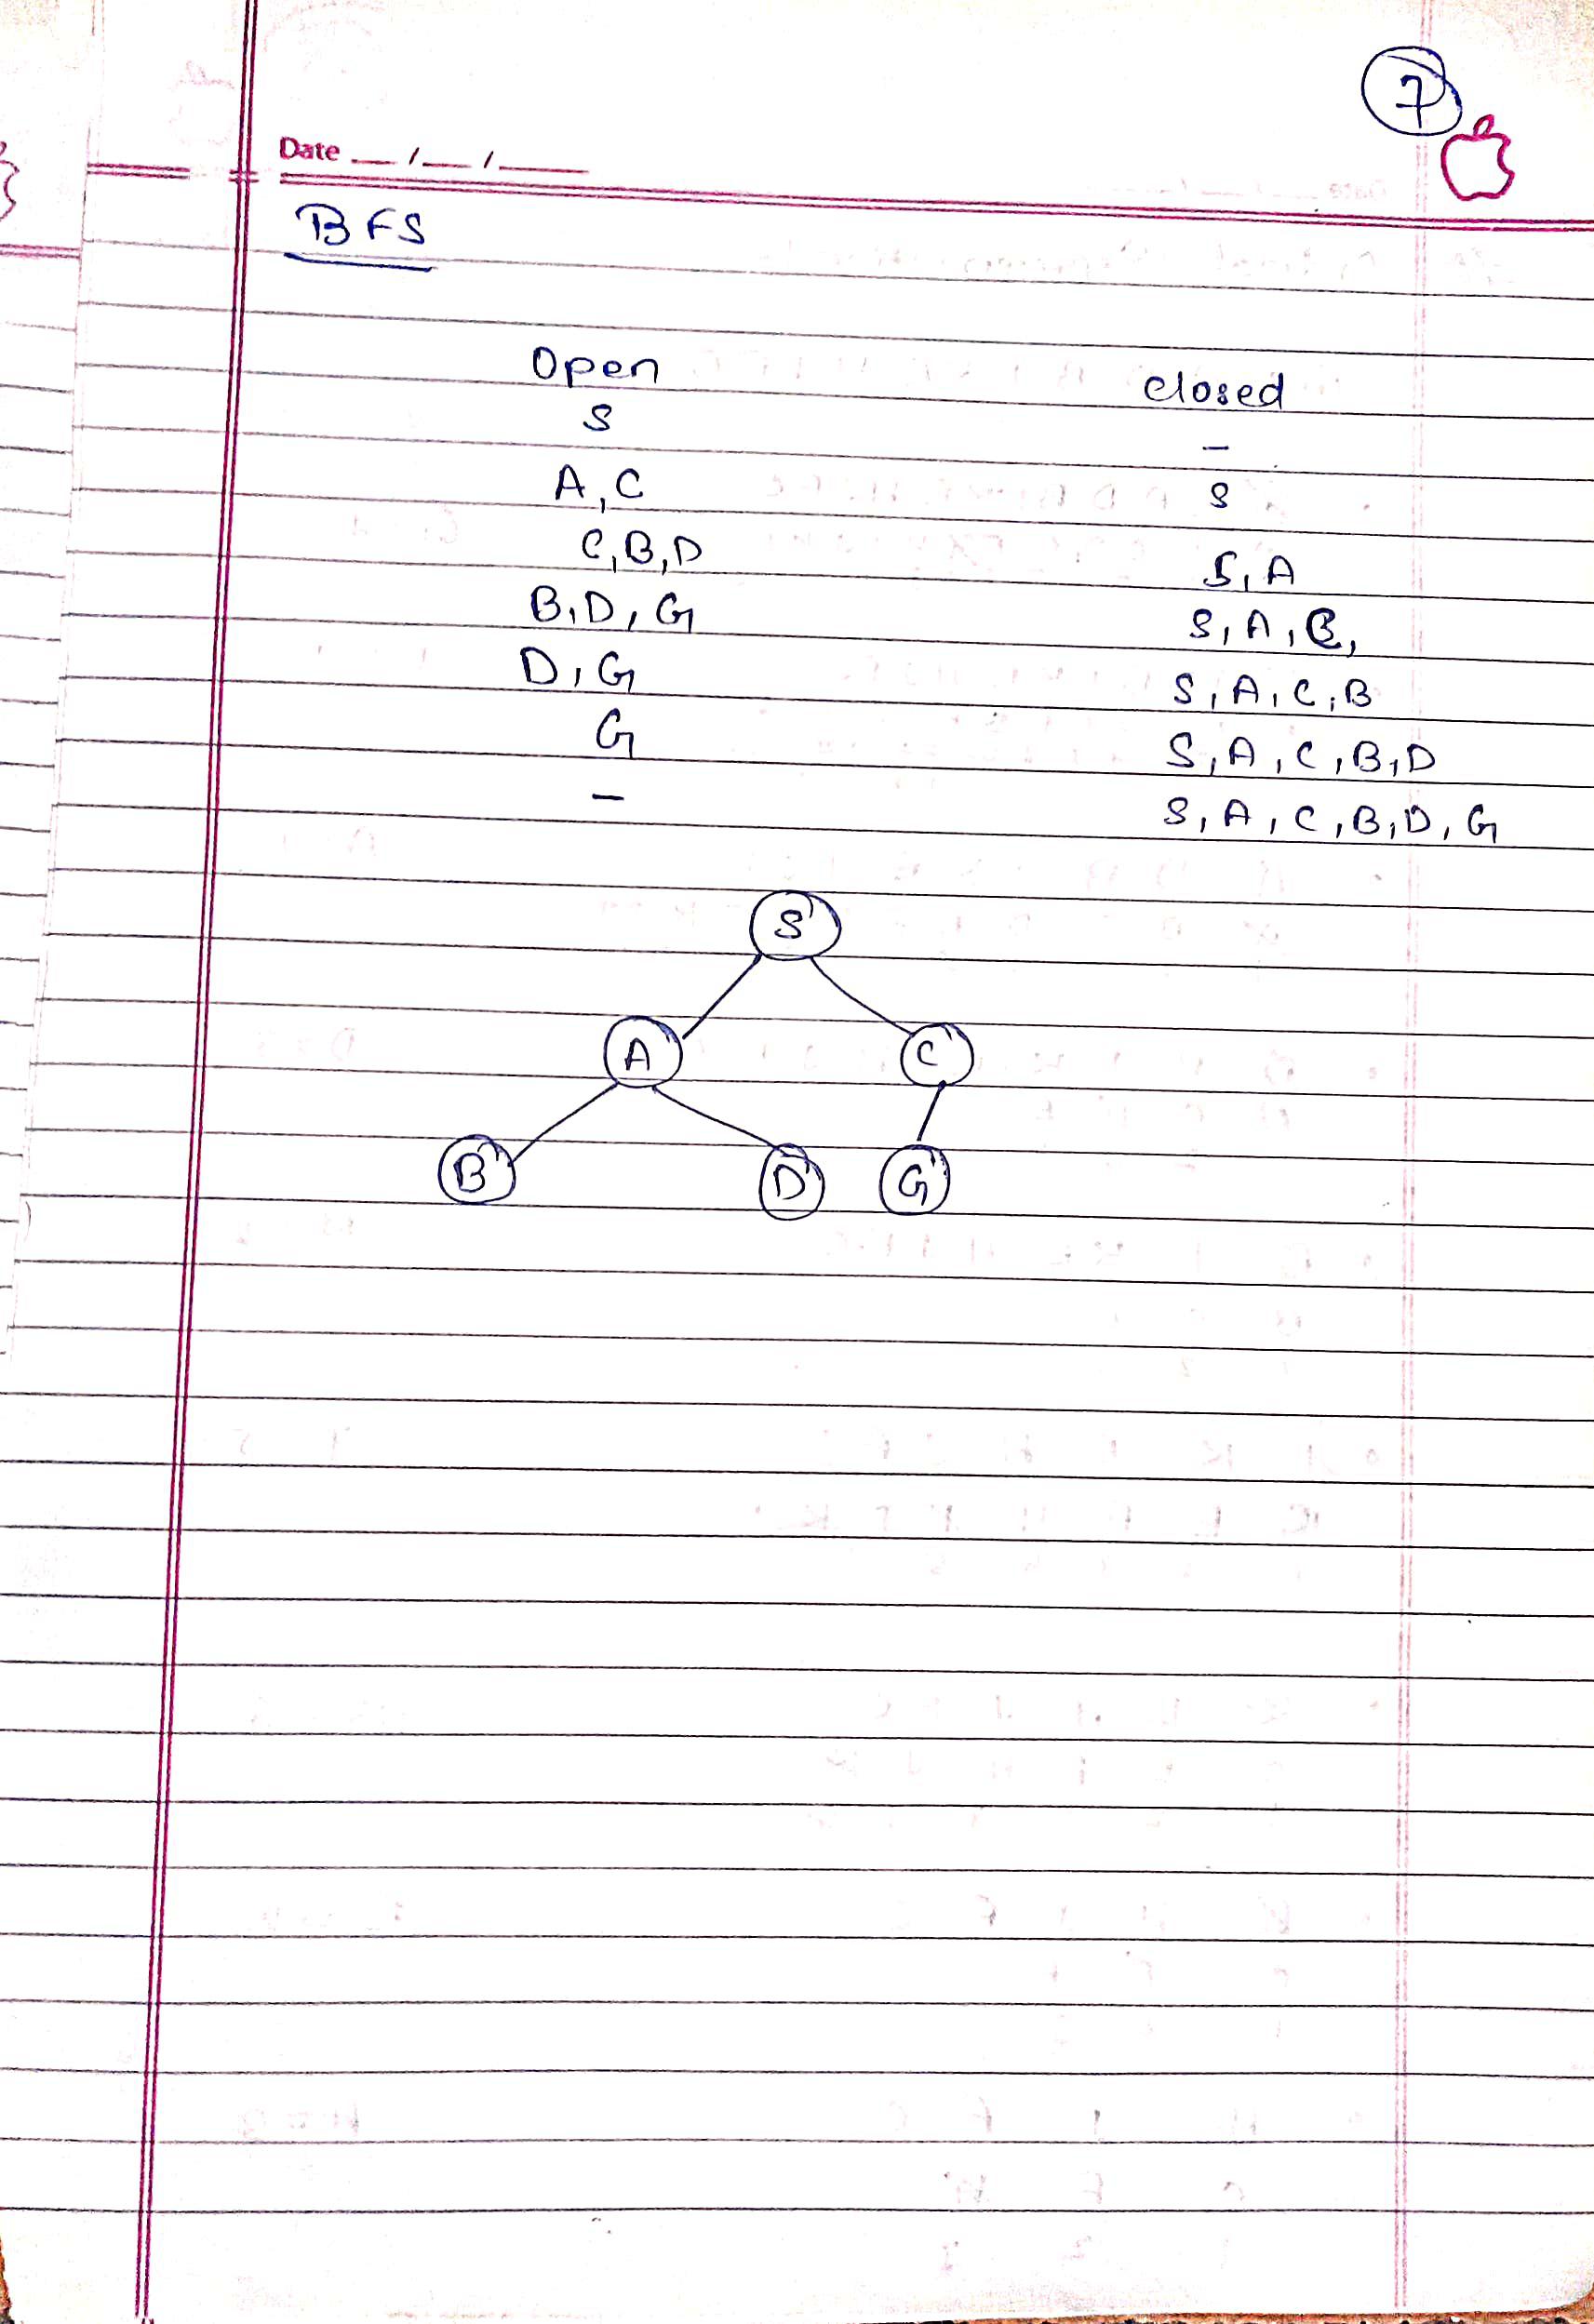 7
Date __/__/____
BFS
Open closed
S –
A, C S
C, B, D S, A
B, D, G S, A, C,
D, G S, A, C, B
G S, A, C, B, D
– S, A, C, B, D, G
S
A C
B D G